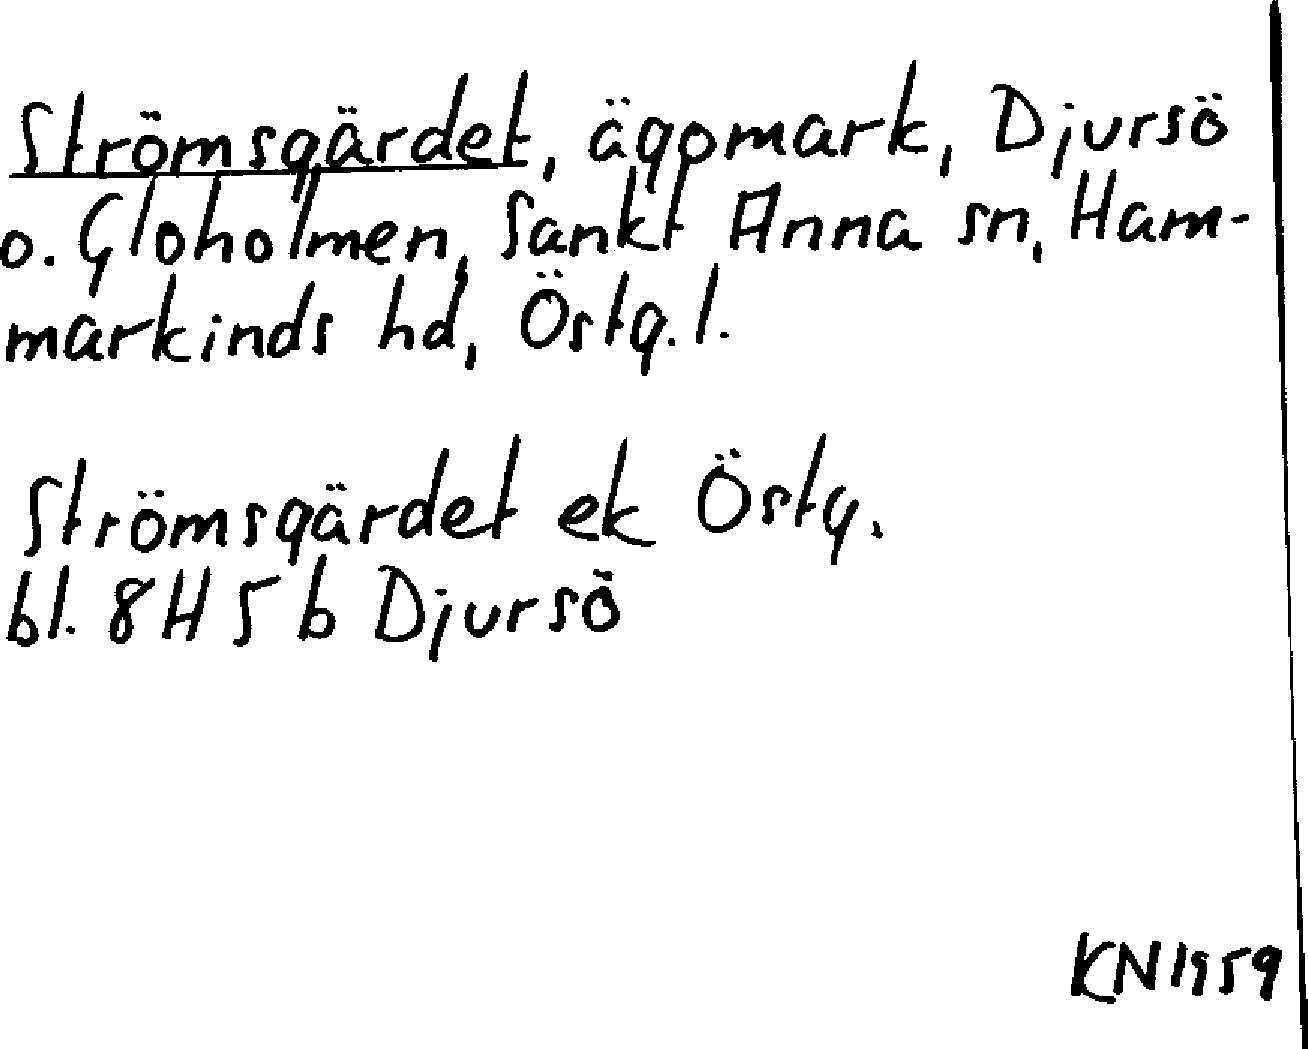 Strömsgärdet, ägomark, Djursö
o. Gloholmen, Sankt Anna sn, Ham-
markinds hd, Östg. l.
Strömsgärdet ek Östg.
bl. 8H 5 b Djursö
KN 1959